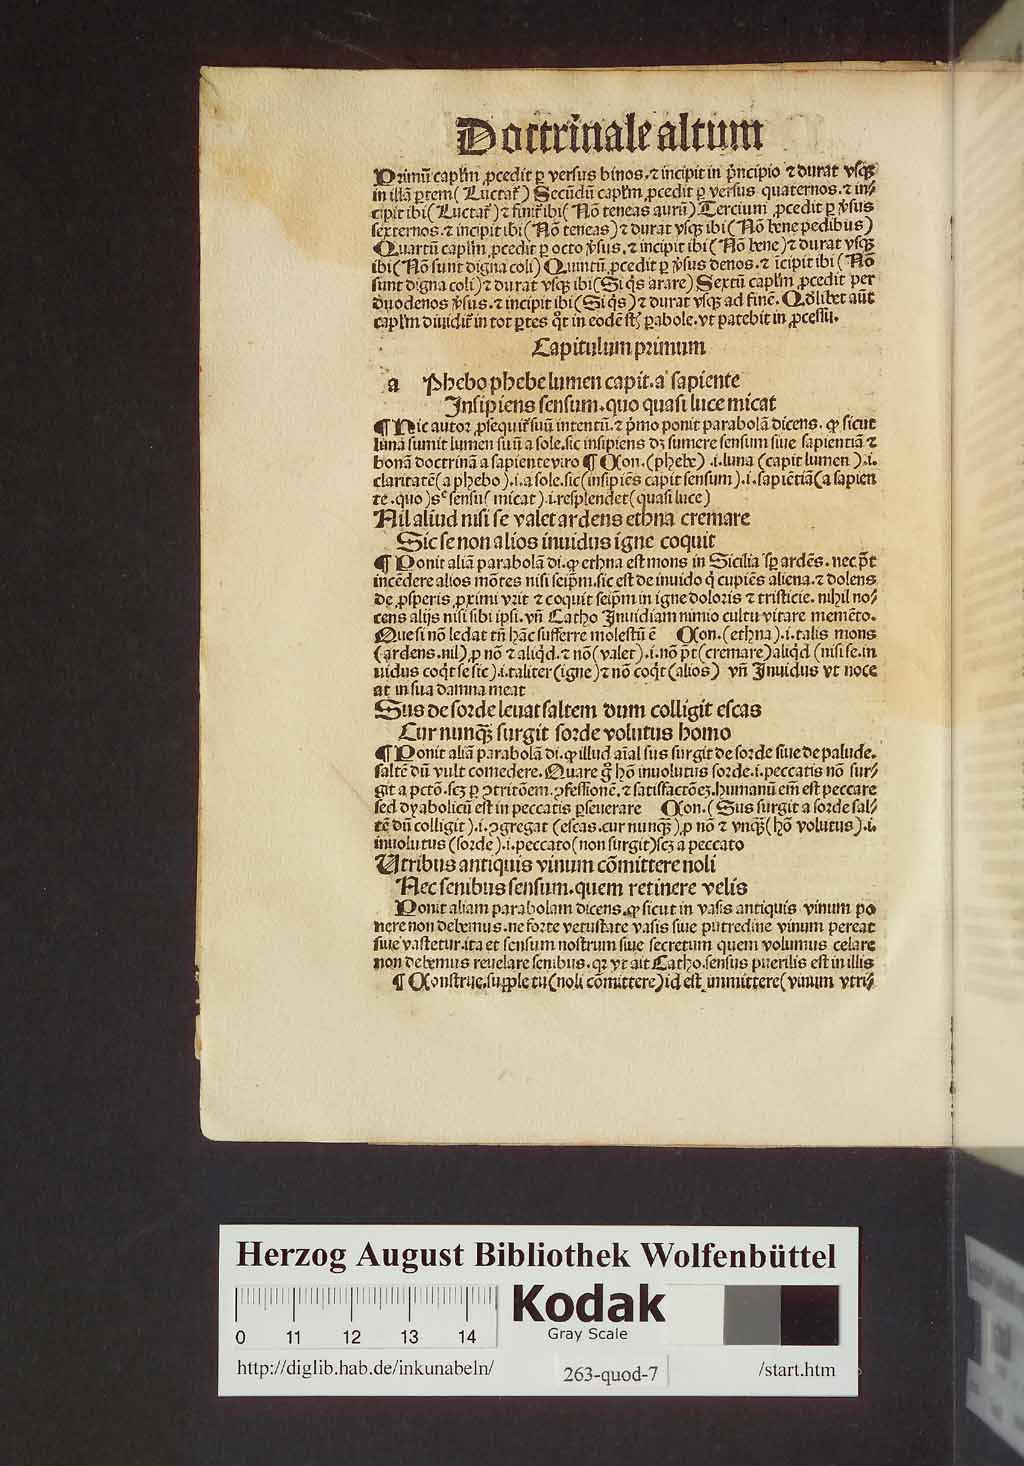 Doctrinale altum
Primū capl'm ꝓcedit ꝑ versus binos. ⁊ incipit in p̄ncipio ⁊ durat vsqꝫ
in illā ꝑtem (Luctat᷑) Secūdū capl'm ꝓcedit ꝑ versus quaternos. ⁊ in⸗
cipit ibi (Luctat᷑) ⁊ finit᷑ ibi (Nō teneas aurū) Tercium ꝓcedit ꝑ v̓sus
sexternos. ⁊ incipit ibi (Nō teneas) ⁊ durat vsqꝫ ibi (Nō bene pedibus)
Quartū capl'm ꝓcedit ꝑ octo v̓sus. ⁊ incipit ibi (Nō bene) ⁊ durat vsqꝫ
ibi (Nō sunt digna coli) Quintū ꝓcedit ꝑ v̓sus denos. ⁊ īcipit ibi (Nō
sunt digna coli) ⁊ durat vsqꝫ ibi (Si q̄s arare) Sextū capl'm ꝓcedit per
duodenos v̓sus. ⁊ incipit ibi (Si q̄s) ⁊ durat vsqꝫ ad finē. Qd̓libet aūt
capl'm diuidit᷑ in tot ꝑtes qt̄ in eodē st̄ ꝑabole. vt patebit in ꝓcessu.
Capitulum primum
a Phebo phebe lumen capit. a sapiente
Insipiens sensum. quo quasi luce micat
¶ Hic autor ꝓsequit᷑ suū intentū. ⁊ p̄mo ponit parabolā dicens. ꝙ sicut
luna sumit lumen suū a sole. sic insipiens dꝫ sumere sensum siue sapientiā ⁊
bonā doctrinā a sapiente viro ¶ Con. (phebe) .i. luna (capit lumen) .i.
claritatē (a phebo) .i. a sole. sic (insipiēs capit sensum) .i. sapiētiā (a sapien
te. quo) sc̄ sensu (micat) .i. resplendet (quasi luce)
Nil aliud nisi se valet ardens ethna cremare
Sic se non alios inuidus igne coquit
¶ Ponit aliā parabolā di. ꝙ ethna est mons in Sicilia sꝑ ardēs. nec p̄t
incēdere alios mōtes nisi seip̄m. sic est de inuido q̓ cupiēs aliena. ⁊ dolens
de ꝓsperis ꝓximi vrit ⁊ coquit seip̄m in igne doloris ⁊ tristicie. nihil no⸗
cens alijs nisi sibi ipsi. vn̄ Catho Inuidiam nimio cultu vitare memēto.
Que si nō ledat tn̄ hāc sufferre molestū ē Con. (ethna) .i. talis mons
(ardens. nil) ꝓ nō ⁊ aliq̓d. ⁊ nō (valet) .i. nō p̄t (cremare) aliq̓d (nisi se. in
uidus coq̓t se sic) .i. taliter (igne) ⁊ nō coq̓t (alios) vn̄ Inuidus vt noce
at in sua damna meat
Sus de sorde leuat saltem dum colligit escas
Cur nunqꝫ surgit sorde volutus homo
¶ Ponit aliā parabolā di. ꝙ illud aīal sus surgit de sorde siue de palude.
saltē dū vult comedere. Quare g̊ hō inuolutus sorde .i. peccatis nō sur⸗
git a pctō. scꝫ ꝑ ꝯtritōem. ꝯfessionē. ⁊ satisfactōeꝫ. humanū em̄ est peccare
sed dyabolicū est in peccatis ꝑseuerare Con. (Sus surgit a sorde sal⸗
tē dū colligit) .i. ꝯgregat (escas. cur nunqꝫ) ꝓ nō ⁊ vnqꝫ (hō volutus) .i.
inuolutus (sorde) .i. peccato (non surgit) scꝫ a peccato
Utribus antiquis vinum cōmittere noli
Nec senibus sensum. quem retinere velis
Ponit aliam parabolam dicens. ꝙ sicut in vasis antiquis vinum po
nere non debemus. ne forte vetustate vasis siue putredine vinum pereat
siue vastetur. ita et sensum nostrum siue secretum quem volumus celare
non debemus reuelare senibus. qꝛ vt ait Catho. sensus puerilis est in illis
¶ Construe. supple tu (noli cōmittere) id est immittere (vinum vtri⸗
Herzog August Bibliothek Wolfenbüttel
0 11 12 13 14
Kodak
Gray Scale
http://diglib.hab.de/inkunabeln/ 263-quod-7 /start.htm